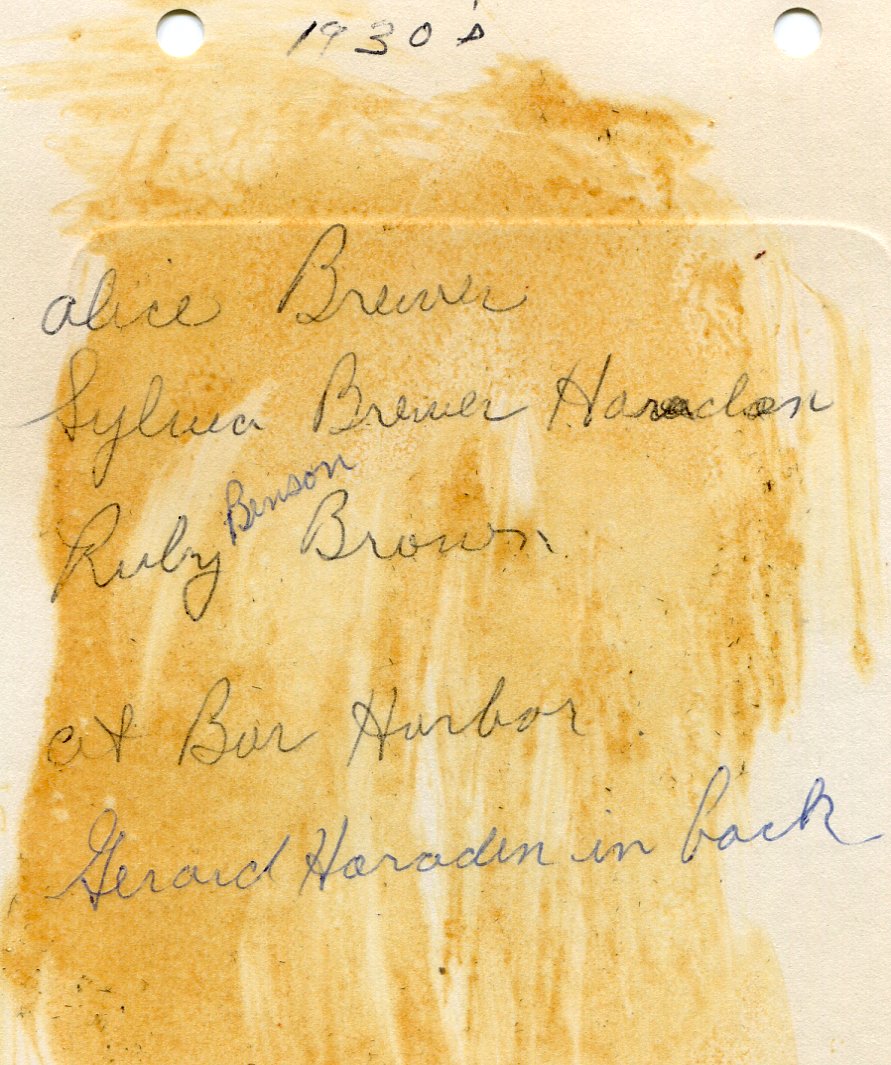 1930's
Alice Brewer
Sylvia Brewer Haraden
Benson
Ruby Brown
at Bar Harbor
Gerard Haraden in back